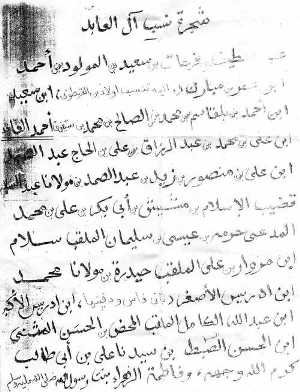 شجرة نسب آل العابد
فرحات بن سعيد بن المولود بن أحمد
ابن مبارك
ابن أحمد بن بلقاسم بن محمد بن الصالح بن محمد بن أحمد
ابن علي بن محمد بن عبد الرزاق بن علي بن الحاج عبد الصمد
ابن علي بن منصور بن زيد بن عبد الصمد بن مولانا
قضيب الإسلام بن مشيش بن أبي بكر بن علي بن محمد
المدعي حرمه بن عيسى بن سليمان الملقب سلام
ابن مزوار بن علي الملقب حيدرة بن مولانا محمد
ابن ادريس الأصغر باني فاس ودفينها، ابن ادريس الأكبر
ابن عبد الله الكامل الملقب المحض بن الحسن المثنى
ابن الحسن السبط بن سيدنا علي بن أبي طالب
كرم الله وجهه وفاطمة الزهراء بنت رسول الله صلى الله عليه وسلم